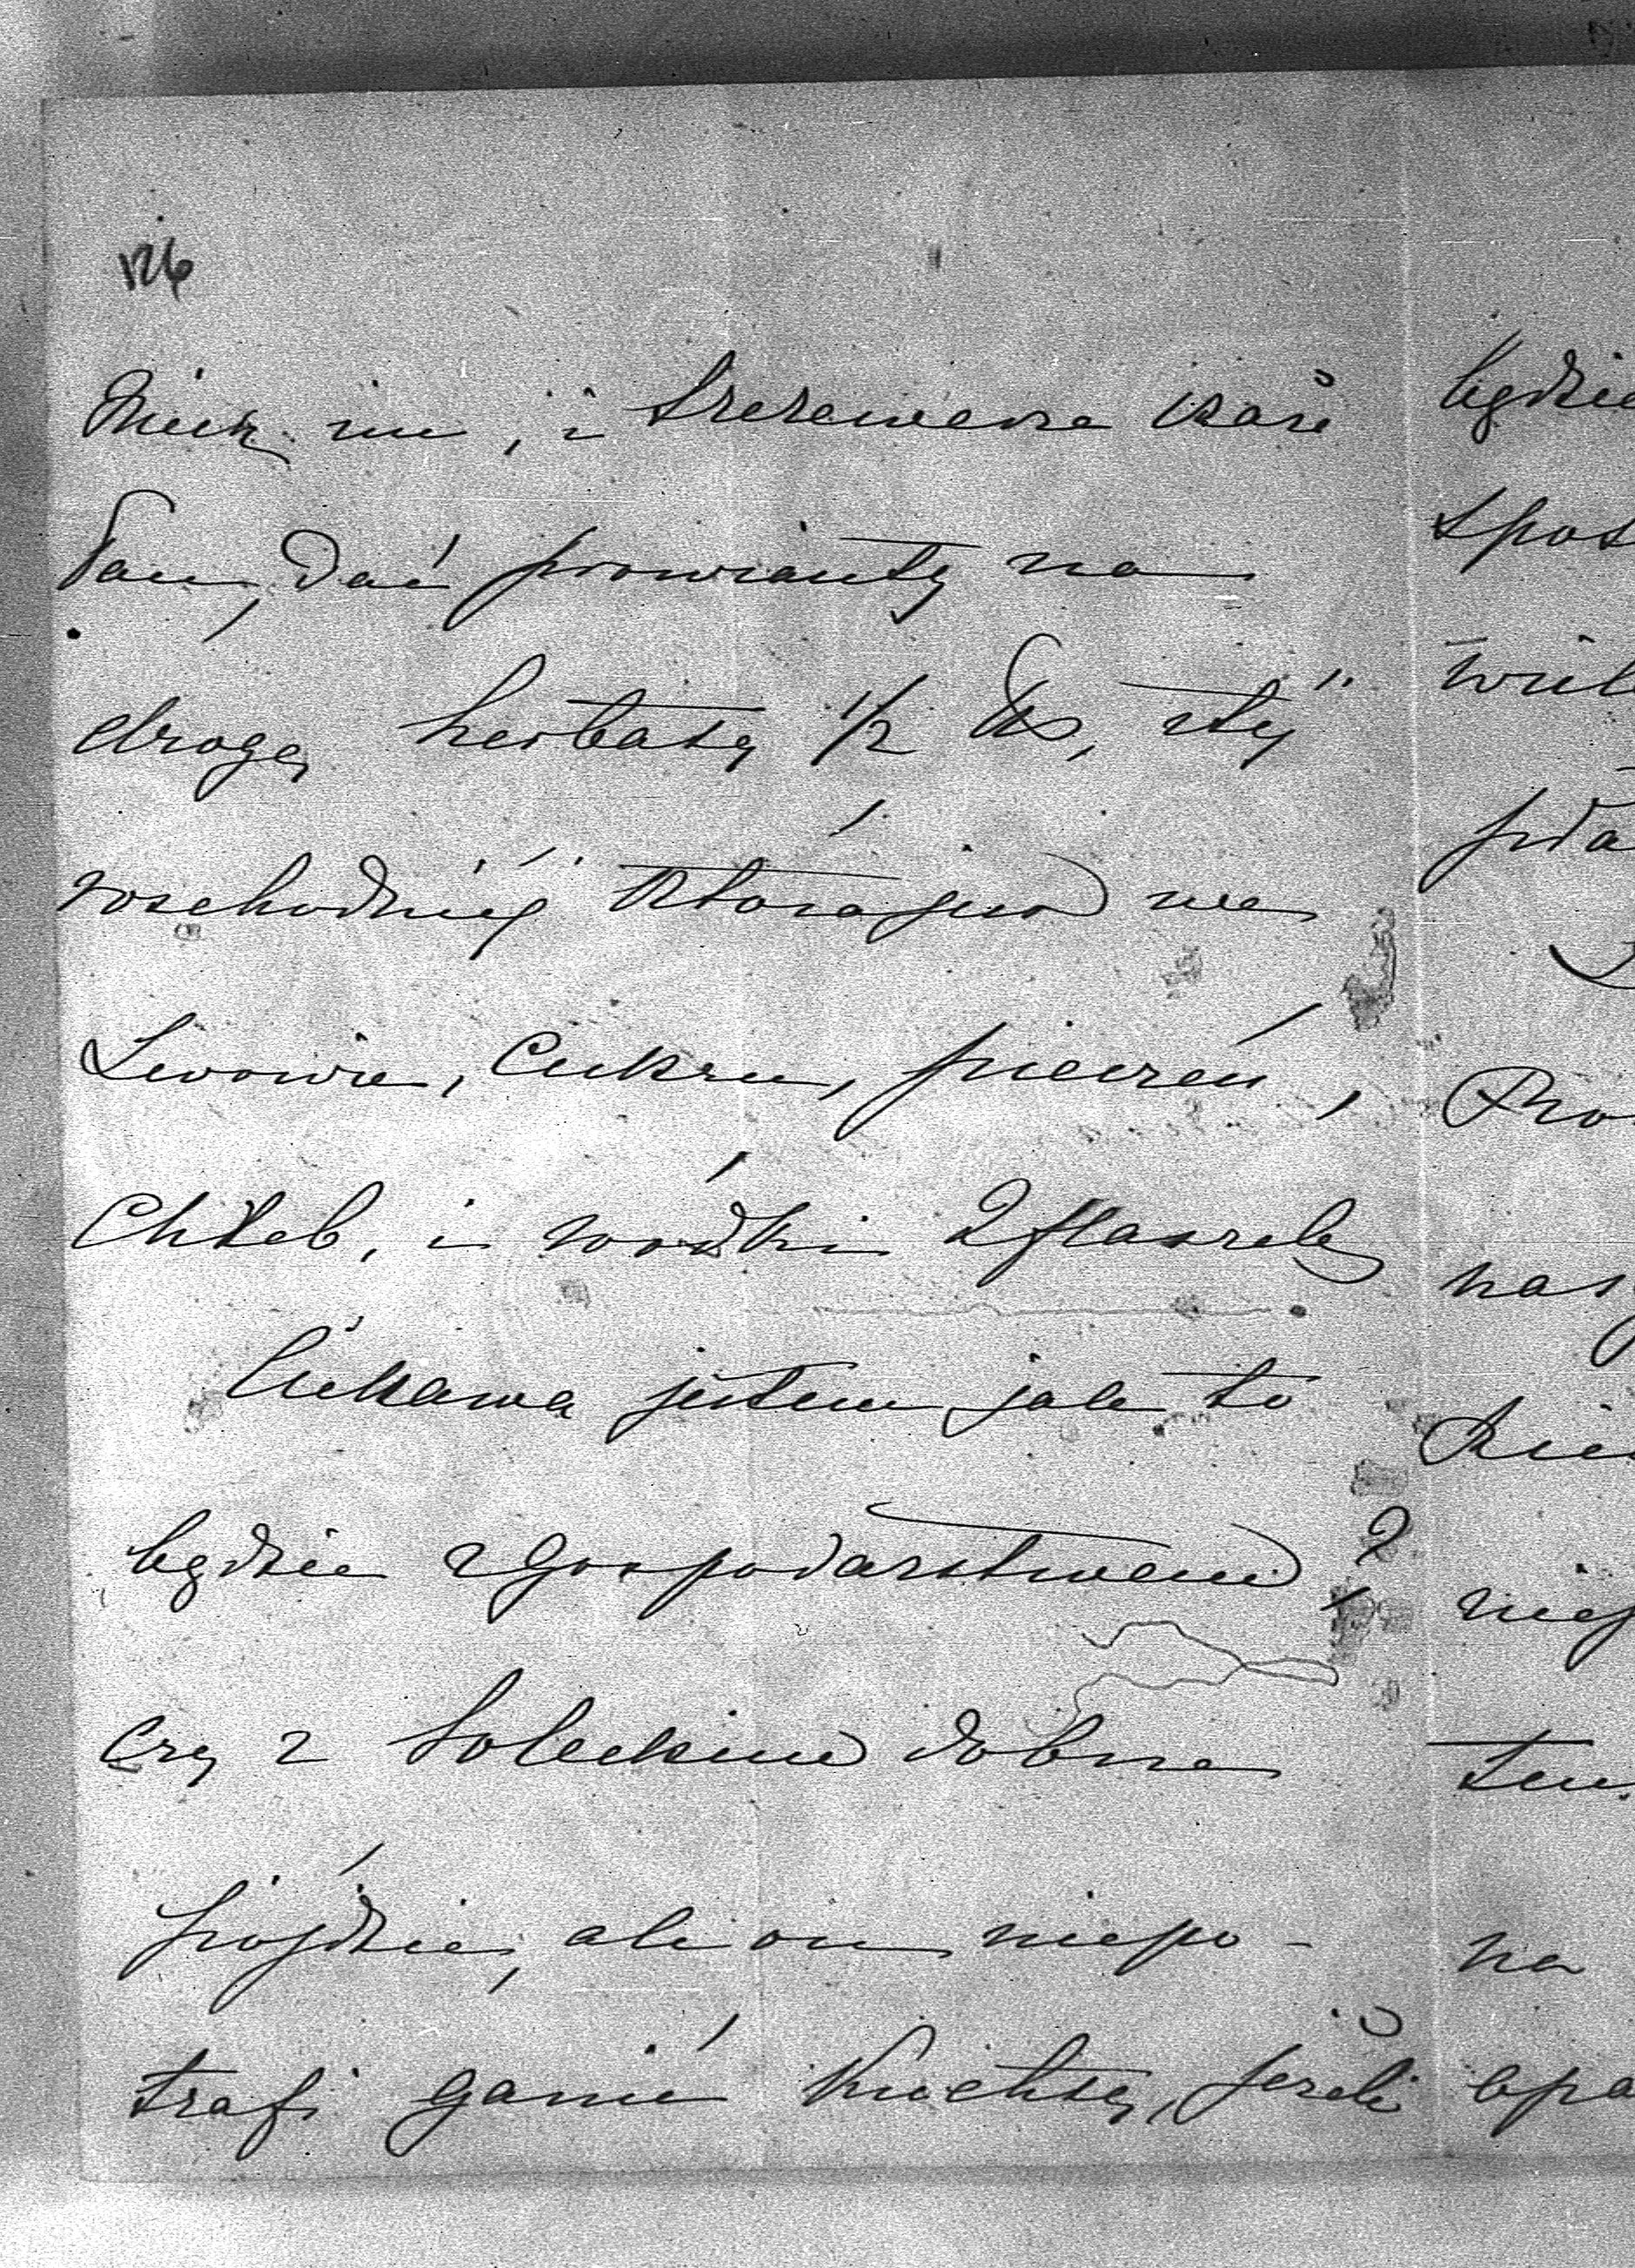 126
nie, i każe
Pan, dać prowianty na
drogę herbaty 1/2 , z tej
wschodniej która jest we
Lwowie, Cukru, pieczeń,
Chleb, i wódki 2 flaszek
Ciekawa jestem jak to
będzie z gospodarstwem?
czy z Soleckim dobrze
pójdzie, ale on niepo-
trafi ganić Kuchtę, jeżeli
będzie
spos
wiel
pda
Pro
nas
niej
tem
na
opa